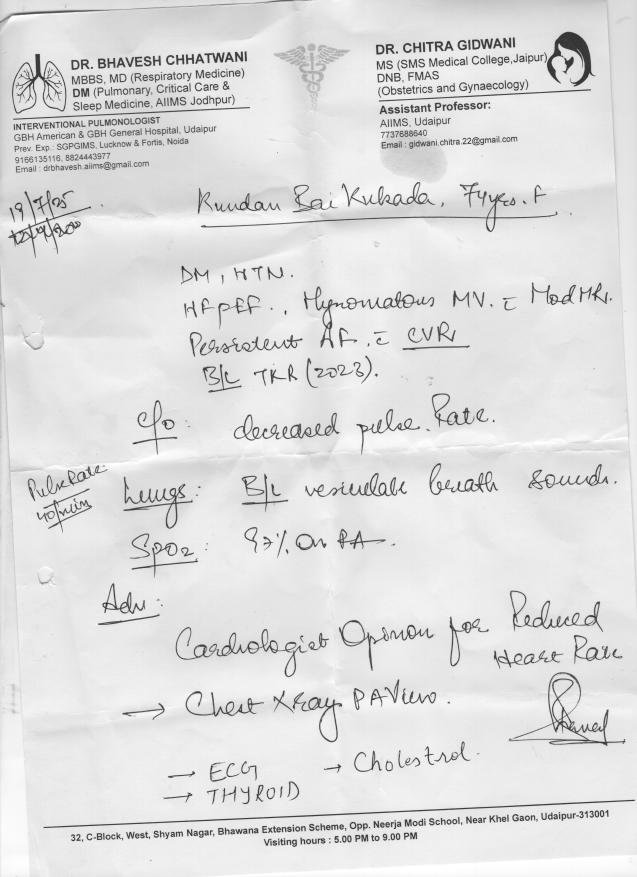 DR. BHAVESH CHHATWANI
MBBS, MD (Respiratory Medicine)
DM (Pulmonary, Critical Care &
Sleep Medicine, AIIMS Jodhpur)
INTERVENTIONAL PULMONOLOGIST
GBH American & GBH General Hospital, Udaipur
Prev. Exp.: SGPGIMS, Lucknow & Fortis, Noida
9166135116, 8824443977
Email : drbhavesh.aiims@gmail.com
DR. CHITRA GIDWANI
MS (SMS Medical College,Jaipur)
DNB, FMAS
(Obstetrics and Gynaecology)
Assistant Professor:
AIIMS, Udaipur
7737688640
Email : gidwani.chitra.22@gmail.com
19/7/25
Kundan Bai Kukada, 74yrs. F
DM, HTN.
HFpEF., MV. c̄ Mod MR.
Persistent AF, c̄ CVR
B/L TKR (2023).
c/o: decreased pulse Rate.
Pulse Rate
40/min
Lungs: B/L vesicular breath sounds.
SPO2: 97% On RA.
Adv:
Cardiologist Opinion for Reduced
Heart Rate
→ Chest Xray PA View.
→ ECG → Cholestrol.
→ THYROID
32, C-Block, West, Shyam Nagar, Bhawana Extension Scheme, Opp. Neerja Modi School, Near Khel Gaon, Udaipur-313001
Visiting hours : 5.00 PM to 9.00 PM